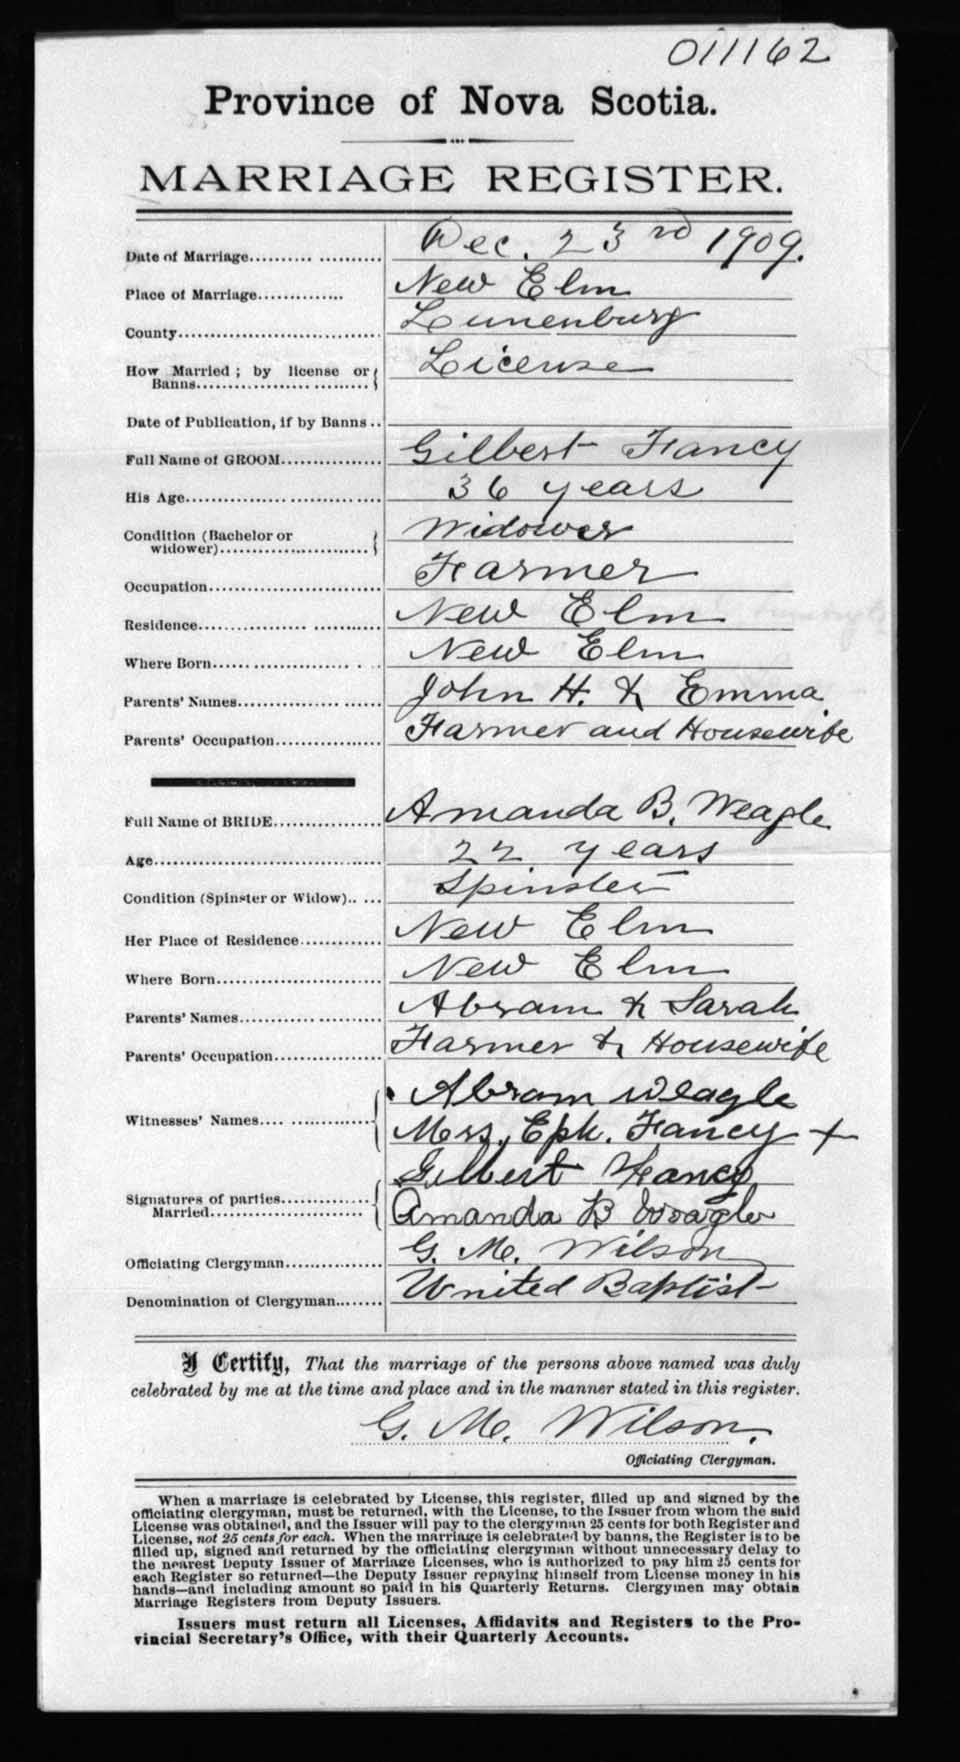 011162
Province of Nova Scotia.
MARRIAGE REGISTER.
Date of Marriage.......... .......... Dec. 23rd 1909.
Place of Marriage............. New Elm
County............................. Lunenburg
How Married ; by license or License
Banns.............................
Date of Publication, if by Banns ..
Full Name of GROOM................ Gilbert Fancy
His Age............................. 36 years
Condition (Bachelor or Widower
widower).........................
Occupation.......................... Farmer
Residence........................... New Elm
Where Born...................... . . New Elm
Parents' Names..................... John H. & Emma
Parents' Occupation................ Farmer and Housewife
Full Name of BRIDE................. Amanda B. Weagle
Age................................. 22 years
Condition (Spinster or Widow).. ... Spinster
Her Place of Residence............. New Elm
Where Born......................... New Elm
Parents' Names..................... Abram & Sarah
Parents' Occupation................ Farmer & Housewife
Abram Weagle
Witnesses' Names.... ..............
Mrs. Eph. Fancy +
Gilbert Fancy
Signatures of parties.............
Married.......................
Amanda B Weagle
Officiating Clergyman.............. G. M. Wilson
Denomination of Clergyman........ United Baptist
I Certify, That the marriage of the persons above named was duly
celebrated by me at the time and place and in the manner stated in this register.
G. M. Wilson.
Officiating Clergyman.
When a marriage is celebrated by License, this register, filled up and signed by the
officiating clergyman, must be returned, with the License, to the Issuer from whom the said
License was obtained, and the Issuer will pay to the clergyman 25 cents for both Register and
License, not 25 cents for each. When the marriage is celebrated by banns, the Register is to be
filled up, signed and returned by the officiating clergyman without unnecessary delay to
the nearest Deputy Issuer of Marriage Licenses, who is authorized to pay him 25 cents for
each Register so returned—the Deputy Issuer repaying himself from License money in his
hands—and including amount so paid in his Quarterly Returns. Clergymen may obtain
Marriage Registers from Deputy Issuers.
Issuers must return all Licenses, Affidavits and Registers to the Pro-
vincial Secretary's Office, with their Quarterly Accounts.